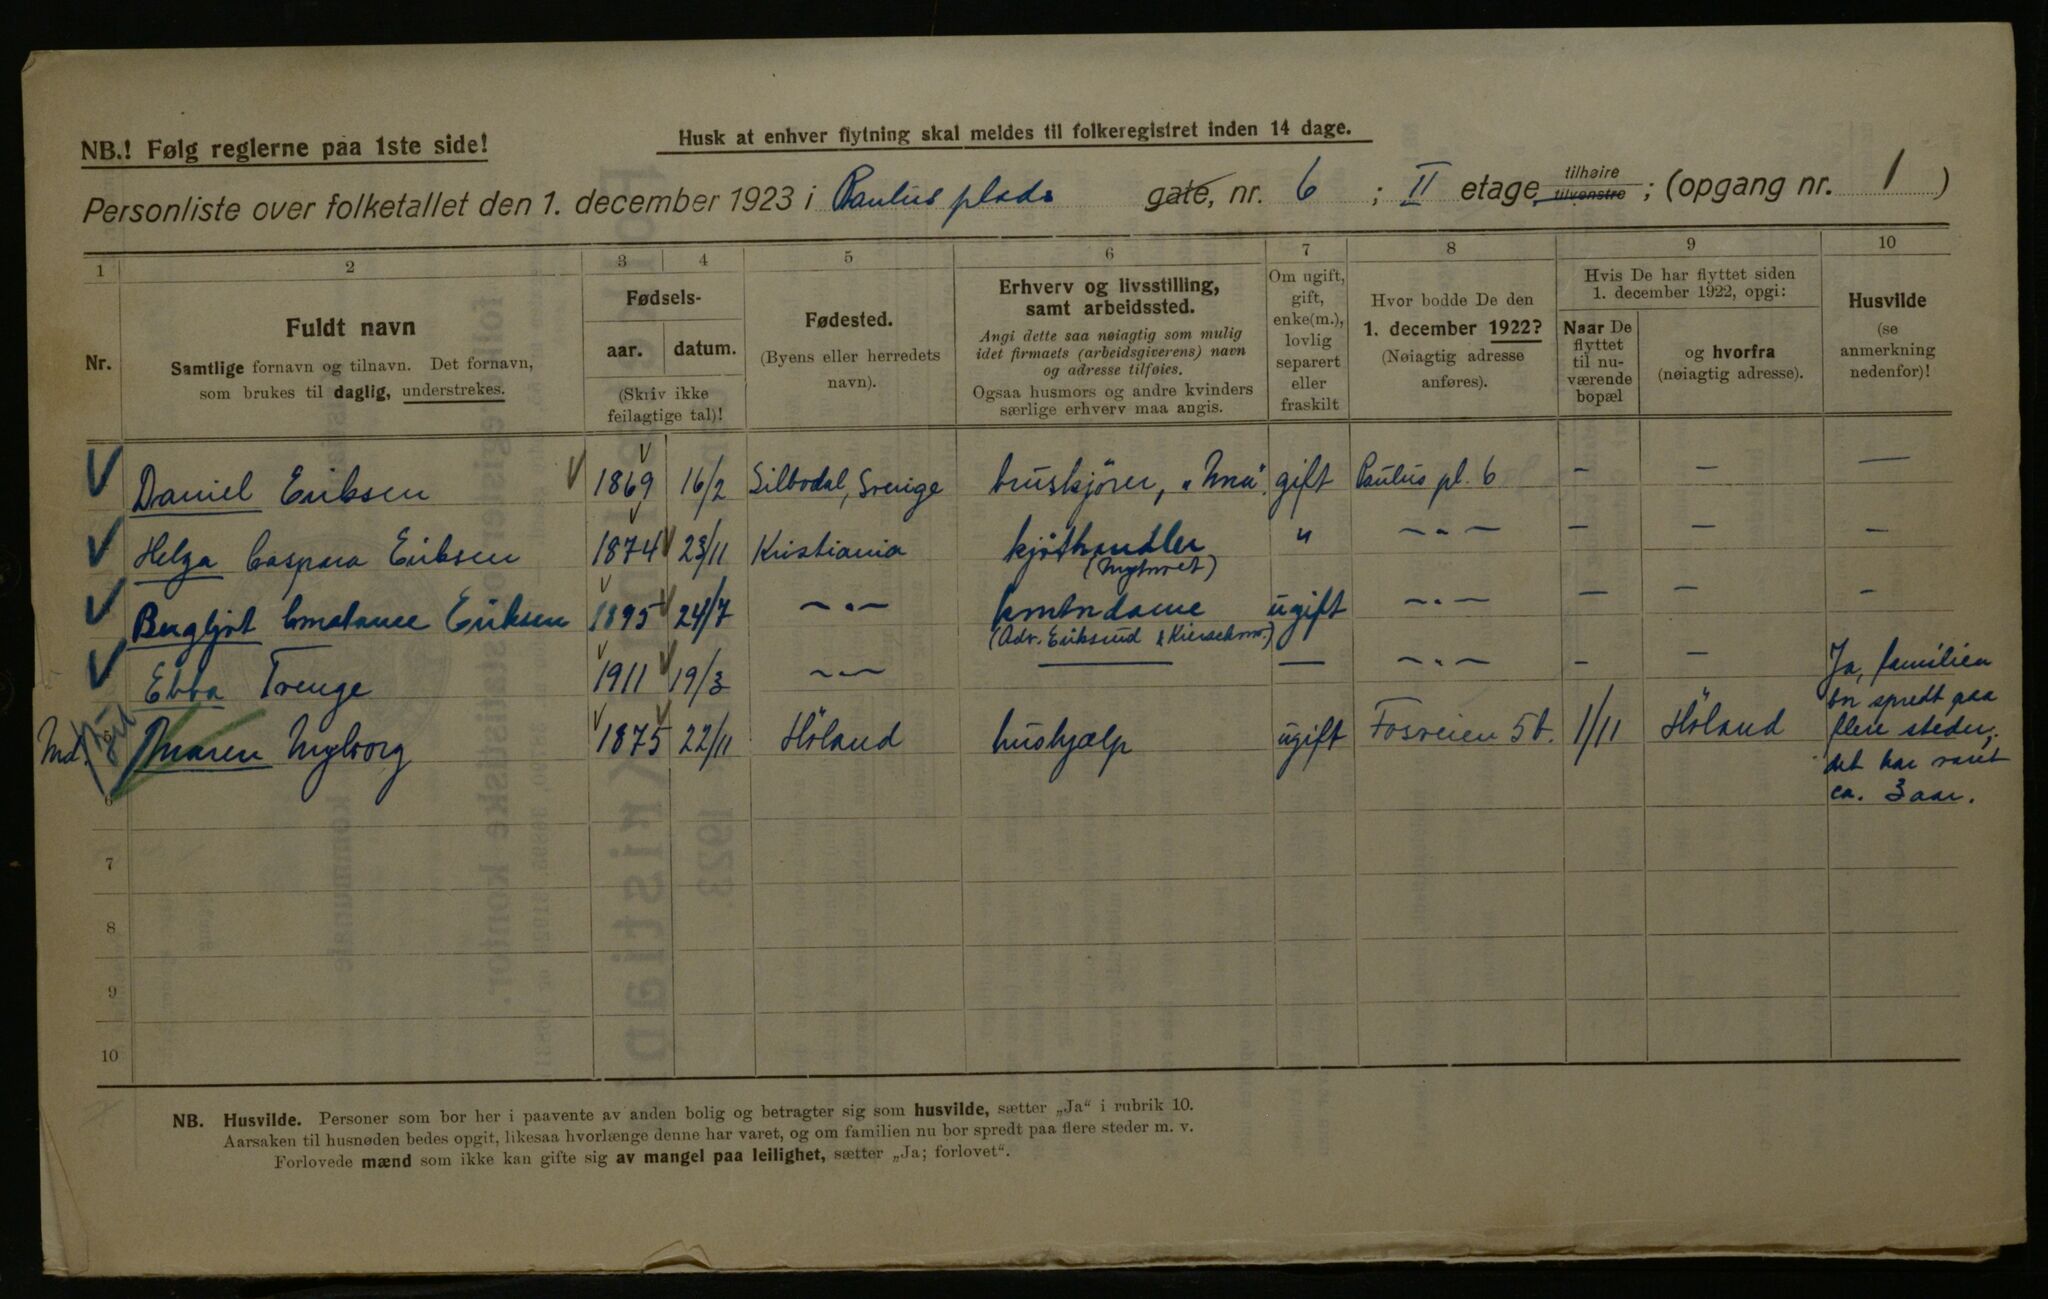 NB.! Følg reglerne paa 1ste side!
Husk at enhver flytning skal meldes til folkeregistret inden 14 dage.
Personliste over folketallet den 1. december 1923 i Paulus plads gate, nr. 6 ; II etage tilhøire tilvenstre ; (opgang nr. 1 )
1 2 3 4 5 6 7 8 9 10
Nr.
Fuldt navn
Samtlige fornavn og tilnavn. Det fornavn,
som brukes til daglig, understrekes.
Fødsels-
aar. datum.
(Skriv ikke
feilagtige tal)!
Fødested.
(Byens eller herredets
navn).
Erhverv og livsstilling,
samt arbeidssted.
Angi dette saa nøiagtig som mulig
idet firmaets (arbeidsgiverens) navn
og adresse tilføies.
Ogsaa husmors og andre kvinders
særlige erhverv maa angis.
Om ugift,
gift,
enke(m.),
lovlig
separert
eller
fraskilt
Hvor bodde De den
1. december 1922?
(Nøiagtig adresse
anføres).
Hvis De har flyttet siden
1. december 1922, opgi:
Naar De
flyttet
til nu-
værende
bopæl
og hvorfra
(nøiagtig adresse).
Husvilde
(se
anmerkning
nedenfor)!
Daniel Eriksen 1869 16/2 Silbodal, Sverige bruskjører, gift Paulus pl. 6 — — —
Helga Caspara Eriksen 1874 23/11 Kristiania kjøthandler " — " — — — —
(Nytorvet)
Bergljot Constance Eriksen 1895 24/7 — " — kontordame ugift — " — — — —
(Adv. Eriksrud & )
Ebba Trenge 1911 19/3 — " — — — — " — — — Ja, familien
bor spredt paa
5 Maren Nyborg 1875 22/11 Høland hushjælp ugift Fosveien 5b. 1/11 Høland flere steder;
det har varet
ca. 3 aar.
6
7
8
9
10
NB. Husvilde. Personer som bor her i paavente av anden bolig og betragter sig som husvilde, sætter „Ja" i rubrik 10.
Aarsaken til husnøden bedes opgit, likesaa hvorlænge denne har varet, og om familien nu bor spredt paa flere steder m. v.
Forlovede mænd som ikke kan gifte sig av mangel paa leilighet, sætter „Ja; forlovet".